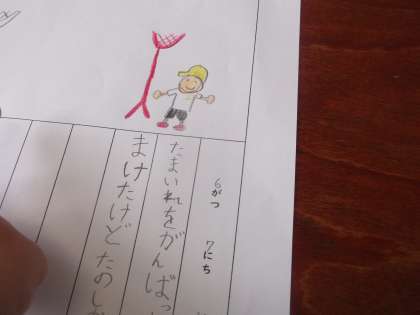 6がつ 7にち
たまいれをがんばっ
まけたけどたのし